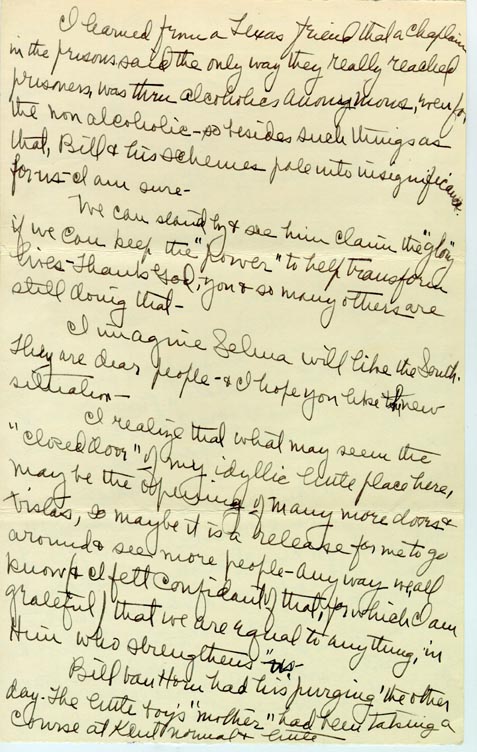 I learned from a Texas friend that a chaplain
in the prisons, said the only way they really reached
prisoners, was thru alcoholics anonymous, even for
the non alcoholic - so besides such things as
that, Bill & his schemes pale into insignificance
for us - I am sure -
We can stand by & see him claim the "glory"
if we can keep the "power" to help transform
lives - Thank God, you & so many others are
still doing that -
I imagine Selma will like the South.
They are dear people - & I hope you like the new
situation -
I realize that what may seem the
"closed door" of my idyllic little place here,
may be the opening of many more doors &
vistas, so maybe it is a release for me to go
around & see more people - Any way we all
know (& I felt confidant of that, for which I am
grateful) that we are equal to anything, in
Him who strengthens us -
Bill Van Horn had his 'purging' the other
day. The little toy's "mother" had been taking a
course at Kent normal & little